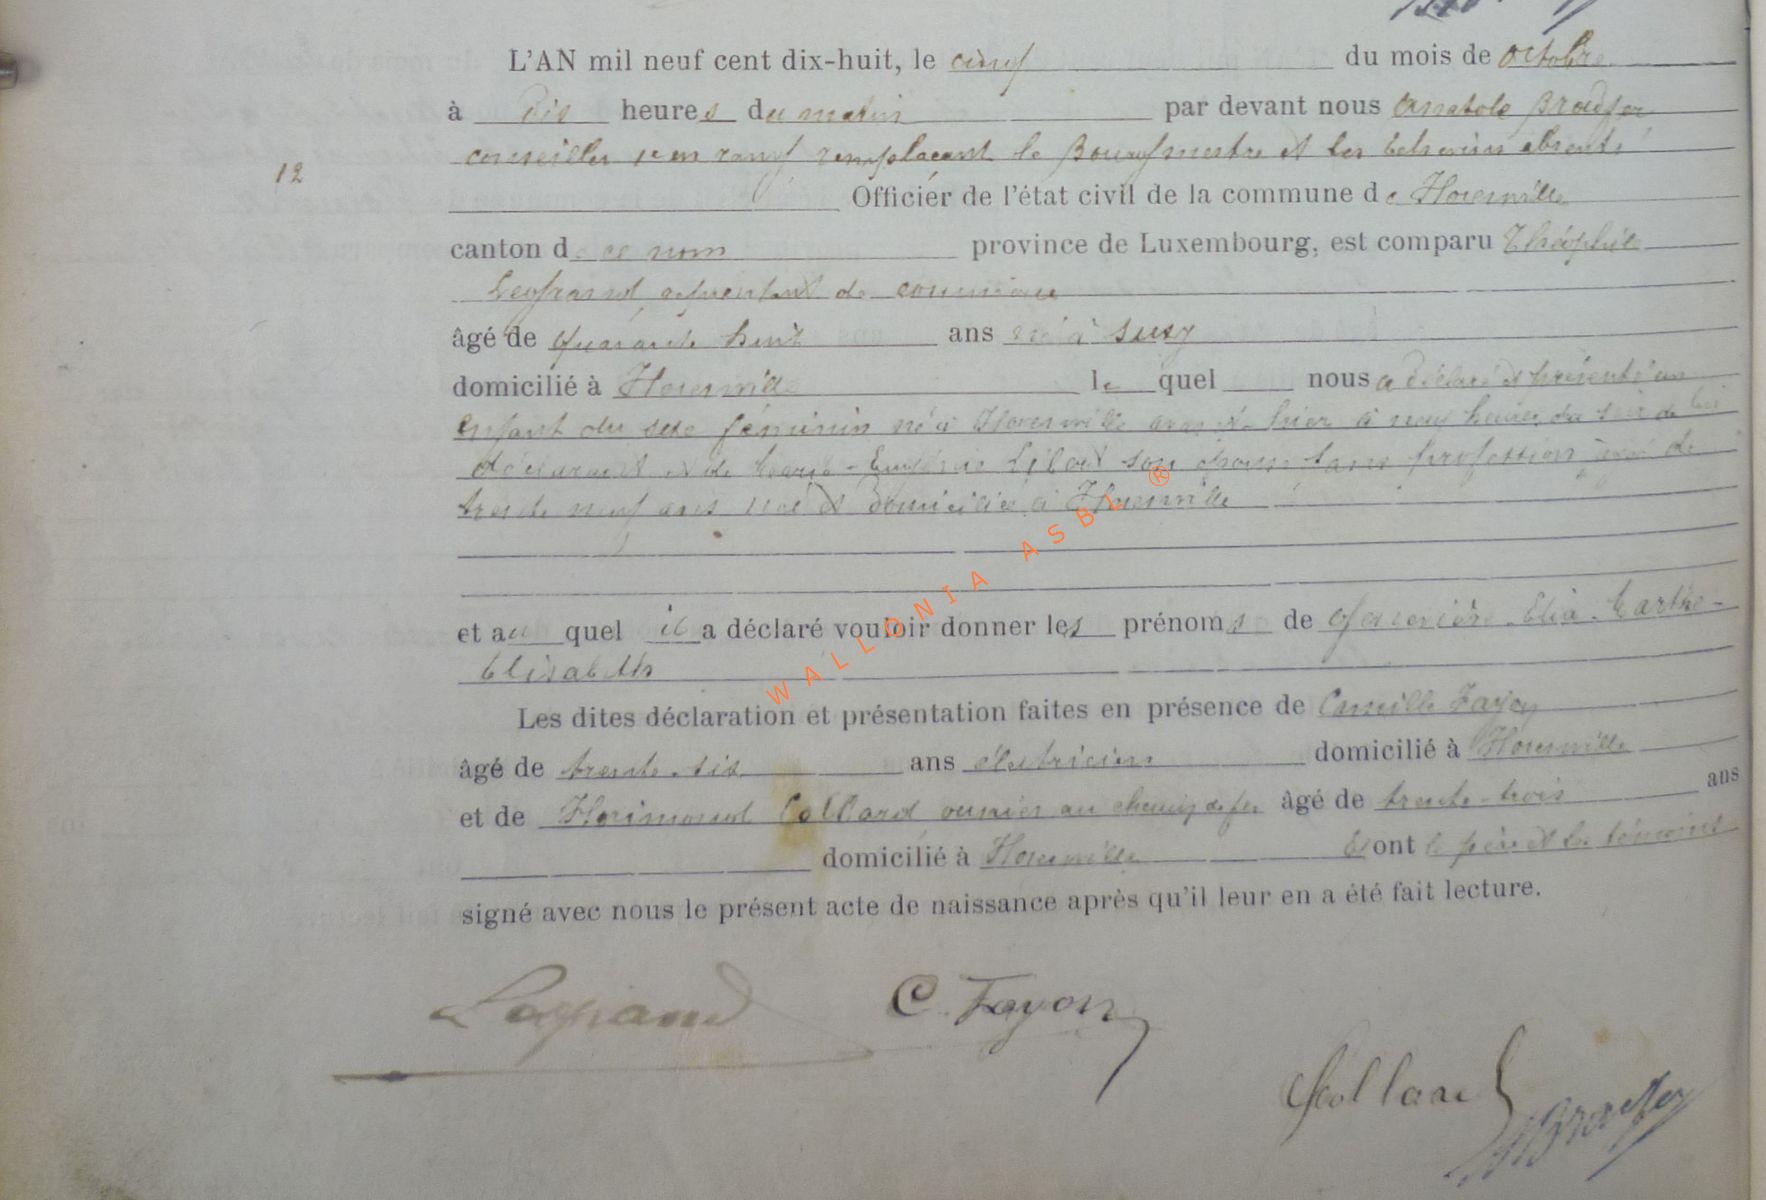 12
L'AN mil neuf cent dix-huit, le cinq du mois de octobre
à dix heures du matin par devant nous Anatole
conseiller 1er en rang remplaçant le Bourgmestre et les échevins absents
Officier de l'état civil de la commune de Florenville
canton de ce nom province de Luxembourg, est comparu Théophile
Legrand
âgé de quarante huit ans né à Suxy
domicilié à Florenville lequel nous a déclaré et présenté un
enfant du sexe féminin né à Florenville avant hier à neuf heures du soir de lui
déclarant et de Marie-Eugénie son épouse sans profession âgée de
trente neuf ans née et domiciliée à Florenville
et auquel il a déclaré vouloir donner les prénoms de Geneviève-Elia-Marthe-
Elisabeth
Les dites déclaration et présentation faites en présence de Camille Fayon
âgé de trente-six ans électricien domicilié à Florenville
et de Florimond Collard ouvrier au chemin de fer âgé de trente-trois ans
domicilié à Florenville Et ont le père et les témoins
signé avec nous le présent acte de naissance après qu'il leur en a été fait lecture.
Legrand C. Fayon
Collard
WALLONIA ASBL ®